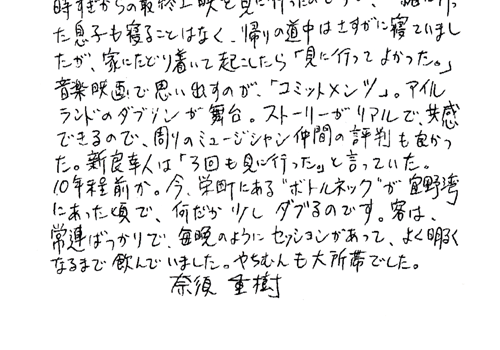 時すぎからの最終上映を見に行ったのですが、一緒に行っ
た息子も寝ることはなく、帰りの道中はさすがに寝ていまし
たが、家にたどり着いて起こしたら「見に行ってよかった。」
音楽映画で思い出すのが、「コミットメンツ」。アイル
ランドのダブリンが舞台。ストーリーがリアルで、共感
できるので、周りのミュージシャン仲間の評判も良かっ
た。新良幸人は「3回も見に行った」と言っていた。
10年程前か。今、栄町にある"ボトルネック"が宜野湾
にあった頃で、何だか少しダブるのです。客は、
常連ばっかりで、毎晩のようにセッションがあって、よく明るく
なるまで飲んでいました。やちむんも大所帯でした。
奈須 重樹